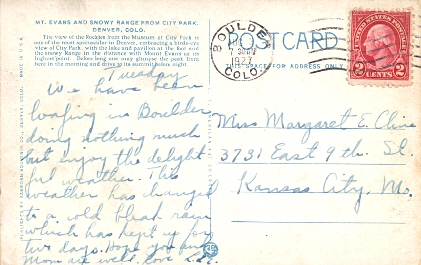 MT. EVANS AND SNOWY RANGE FROM CITY PARK,
DENVER, COLO.
The view of the Rockies from the Museum at City Park is
one of the most spectacular in Denver, embracing a birds-eye
view of City Park, with the lake and pavilion at the foot and
the snowy Range in the distance with Mount Evans as its
highest point. Before long one may glimpse the peak from
here in the morning and drive at its summit before night.
MADE IN U.S.A.
Tuesday
We have been
loafing in Boulder
doing nothing much
but enjoy the delight
ful weather. This
weather has changed
to a cold bleak rain
which has kept up for
two days. Hope you and
Mom are well. Love
POST CARD
THIS SPACE FOR ADDRESS ONLY
BOULDER
1927
COLO.
UNITED STATES POSTAGE
2 CENTS 2
Miss Margaret E. Cline
3731 East 9th. St.
Kansas City, Mo.